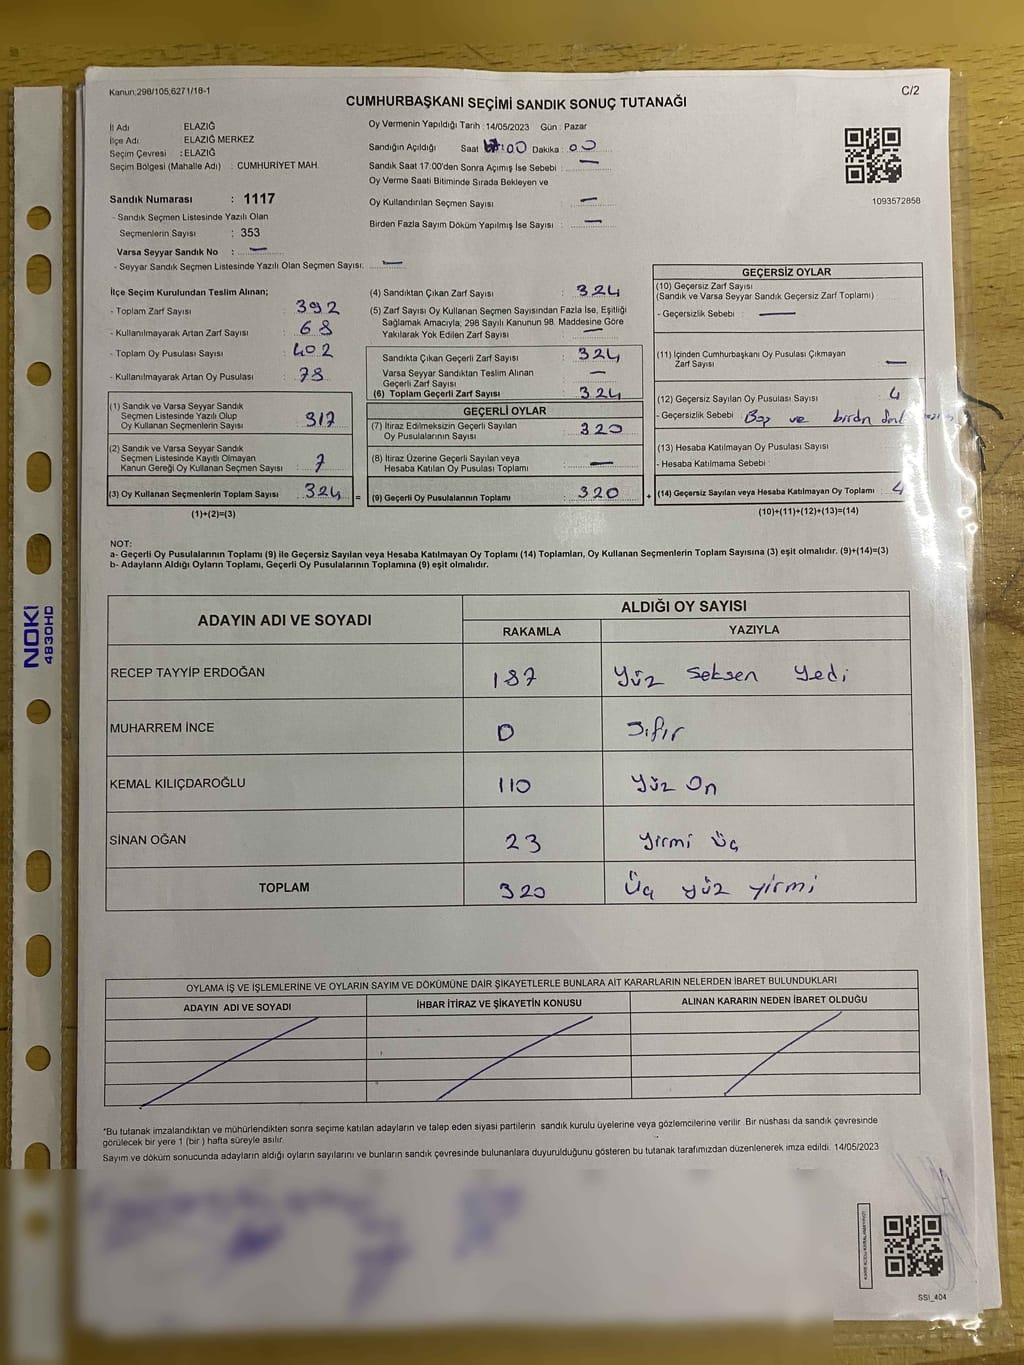 Kanun;298/105,6271/18-1
C/2
CUMHURBAŞKANI SEÇİMİ SANDIK SONUÇ TUTANAĞI
İl Adı ELAZIĞ
İlçe Adı ELAZIĞ MERKEZ
Seçim Çevresi : ELAZIĞ
Seçim Bölgesi (Mahalle Adı) : CUMHURİYET MAH.
Sandık Numarası : 1117
- Sandık Seçmen Listesinde Yazılı Olan
Seçmenlerin Sayısı : 353
Varsa Seyyar Sandık No : —
- Seyyar Sandık Seçmen Listesinde Yazılı Olan Seçmen Sayısı: —
Oy Vermenin Yapıldığı Tarih : 14/05/2023 Gün : Pazar
Sandığın Açıldığı Saat 17:00 Dakika : 00
Sandık Saat 17:00'den Sonra Açımış İse Sebebi : —
Oy Verme Saati Bitiminde Sırada Bekleyen ve
Oy Kullandırılan Seçmen Sayısı : —
Birden Fazla Sayım Döküm Yapılmış İse Sayısı : —
1093572858
İlçe Seçim Kurulundan Teslim Alınan;
- Toplam Zarf Sayısı : 392
- Kullanılmayarak Artan Zarf Sayısı : 68
- Toplam Oy Pusulası Sayısı : 402
- Kullanılmayarak Artan Oy Pusulası : 78
(1) Sandık ve Varsa Seyyar Sandık
Seçmen Listesinde Yazılı Olup
Oy Kullanan Seçmenlerin Sayısı : 317
(2) Sandık ve Varsa Seyyar Sandık
Seçmen Listesinde Kayıtlı Olmayan
Kanun Gereği Oy Kullanan Seçmen Sayısı : 7
(3) Oy Kullanan Seçmenlerin Toplam Sayısı : 324 =
(1)+(2)=(3)
(4) Sandıktan Çıkan Zarf Sayısı : 324
(5) Zarf Sayısı Oy Kullanan Seçmen Sayısından Fazla İse, Eşitliği
Sağlamak Amacıyla; 298 Sayılı Kanunun 98. Maddesine Göre
Yakılarak Yok Edilen Zarf Sayısı : —
Sandıkta Çıkan Geçerli Zarf Sayısı : 324
Varsa Seyyar Sandıktan Teslim Alınan
Geçerli Zarf Sayısı : —
(6) Toplam Geçerli Zarf Sayısı : 324
GEÇERLİ OYLAR
(7) İtiraz Edilmeksizin Geçerli Sayılan
Oy Pusulalarının Sayısı : 320
(8) İtiraz Üzerine Geçerli Sayılan veya
Hesaba Katılan Oy Pusulası Toplamı : —
(9) Geçerli Oy Pusulalarının Toplamı : 320 +
GEÇERSİZ OYLAR
(10) Geçersiz Zarf Sayısı
(Sandık ve Varsa Seyyar Sandık Geçersiz Zarf Toplamı)
- Geçersizlik Sebebi : —
(11) İçinden Cumhurbaşkanı Oy Pusulası Çıkmayan
Zarf Sayısı —
(12) Geçersiz Sayılan Oy Pusulası Sayısı 4
- Geçersizlik Sebebi Boş ve birdn
(13) Hesaba Katılmayan Oy Pusulası Sayısı
- Hesaba Katılmama Sebebi :
(14) Geçersiz Sayılan veya Hesaba Katılmayan Oy Toplamı : 4
(10)+(11)+(12)+(13)=(14)
NOT:
a- Geçerli Oy Pusulalarının Toplamı (9) ile Geçersiz Sayılan veya Hesaba Katılmayan Oy Toplamı (14) Toplamları, Oy Kullanan Seçmenlerin Toplam Sayısına (3) eşit olmalıdır. (9)+(14)=(3)
b- Adayların Aldığı Oyların Toplamı, Geçerli Oy Pusulalarının Toplamına (9) eşit olmalıdır.
ADAYIN ADI VE SOYADI
ALDIĞI OY SAYISI
RAKAMLA YAZIYLA
RECEP TAYYİP ERDOĞAN 187 Yüz Seksen Yedi
MUHARREM İNCE 0 Sıfır
KEMAL KILIÇDAROĞLU 110 Yüz On
SİNAN OĞAN 23 Yirmi üç
TOPLAM 320 Üç yüz yirmi
OYLAMA İŞ VE İŞLEMLERİNE VE OYLARIN SAYIM VE DÖKÜMÜNE DAİR ŞİKAYETLERLE BUNLARA AİT KARARLARIN NELERDEN İBARET BULUNDUKLARI
ADAYIN ADI VE SOYADI İHBAR İTİRAZ VE ŞİKAYETİN KONUSU ALINAN KARARIN NEDEN İBARET OLDUĞU
*Bu tutanak imzalandıktan ve mühürlendikten sonra seçime katılan adayların ve talep eden siyasi partilerin sandık kurulu üyelerine veya gözlemcilerine verilir. Bir nüshası da sandık çevresinde
görülecek bir yere 1 (bir) hafta süreyle asılır.
Sayım ve döküm sonucunda adayların aldığı oyların sayılarını ve bunların sandık çevresinde bulunanlara duyurulduğunu gösteren bu tutanak tarafımızdan düzenlenerek imza edildi. 14/05/2023
SSI_404
NOKI
4830HD